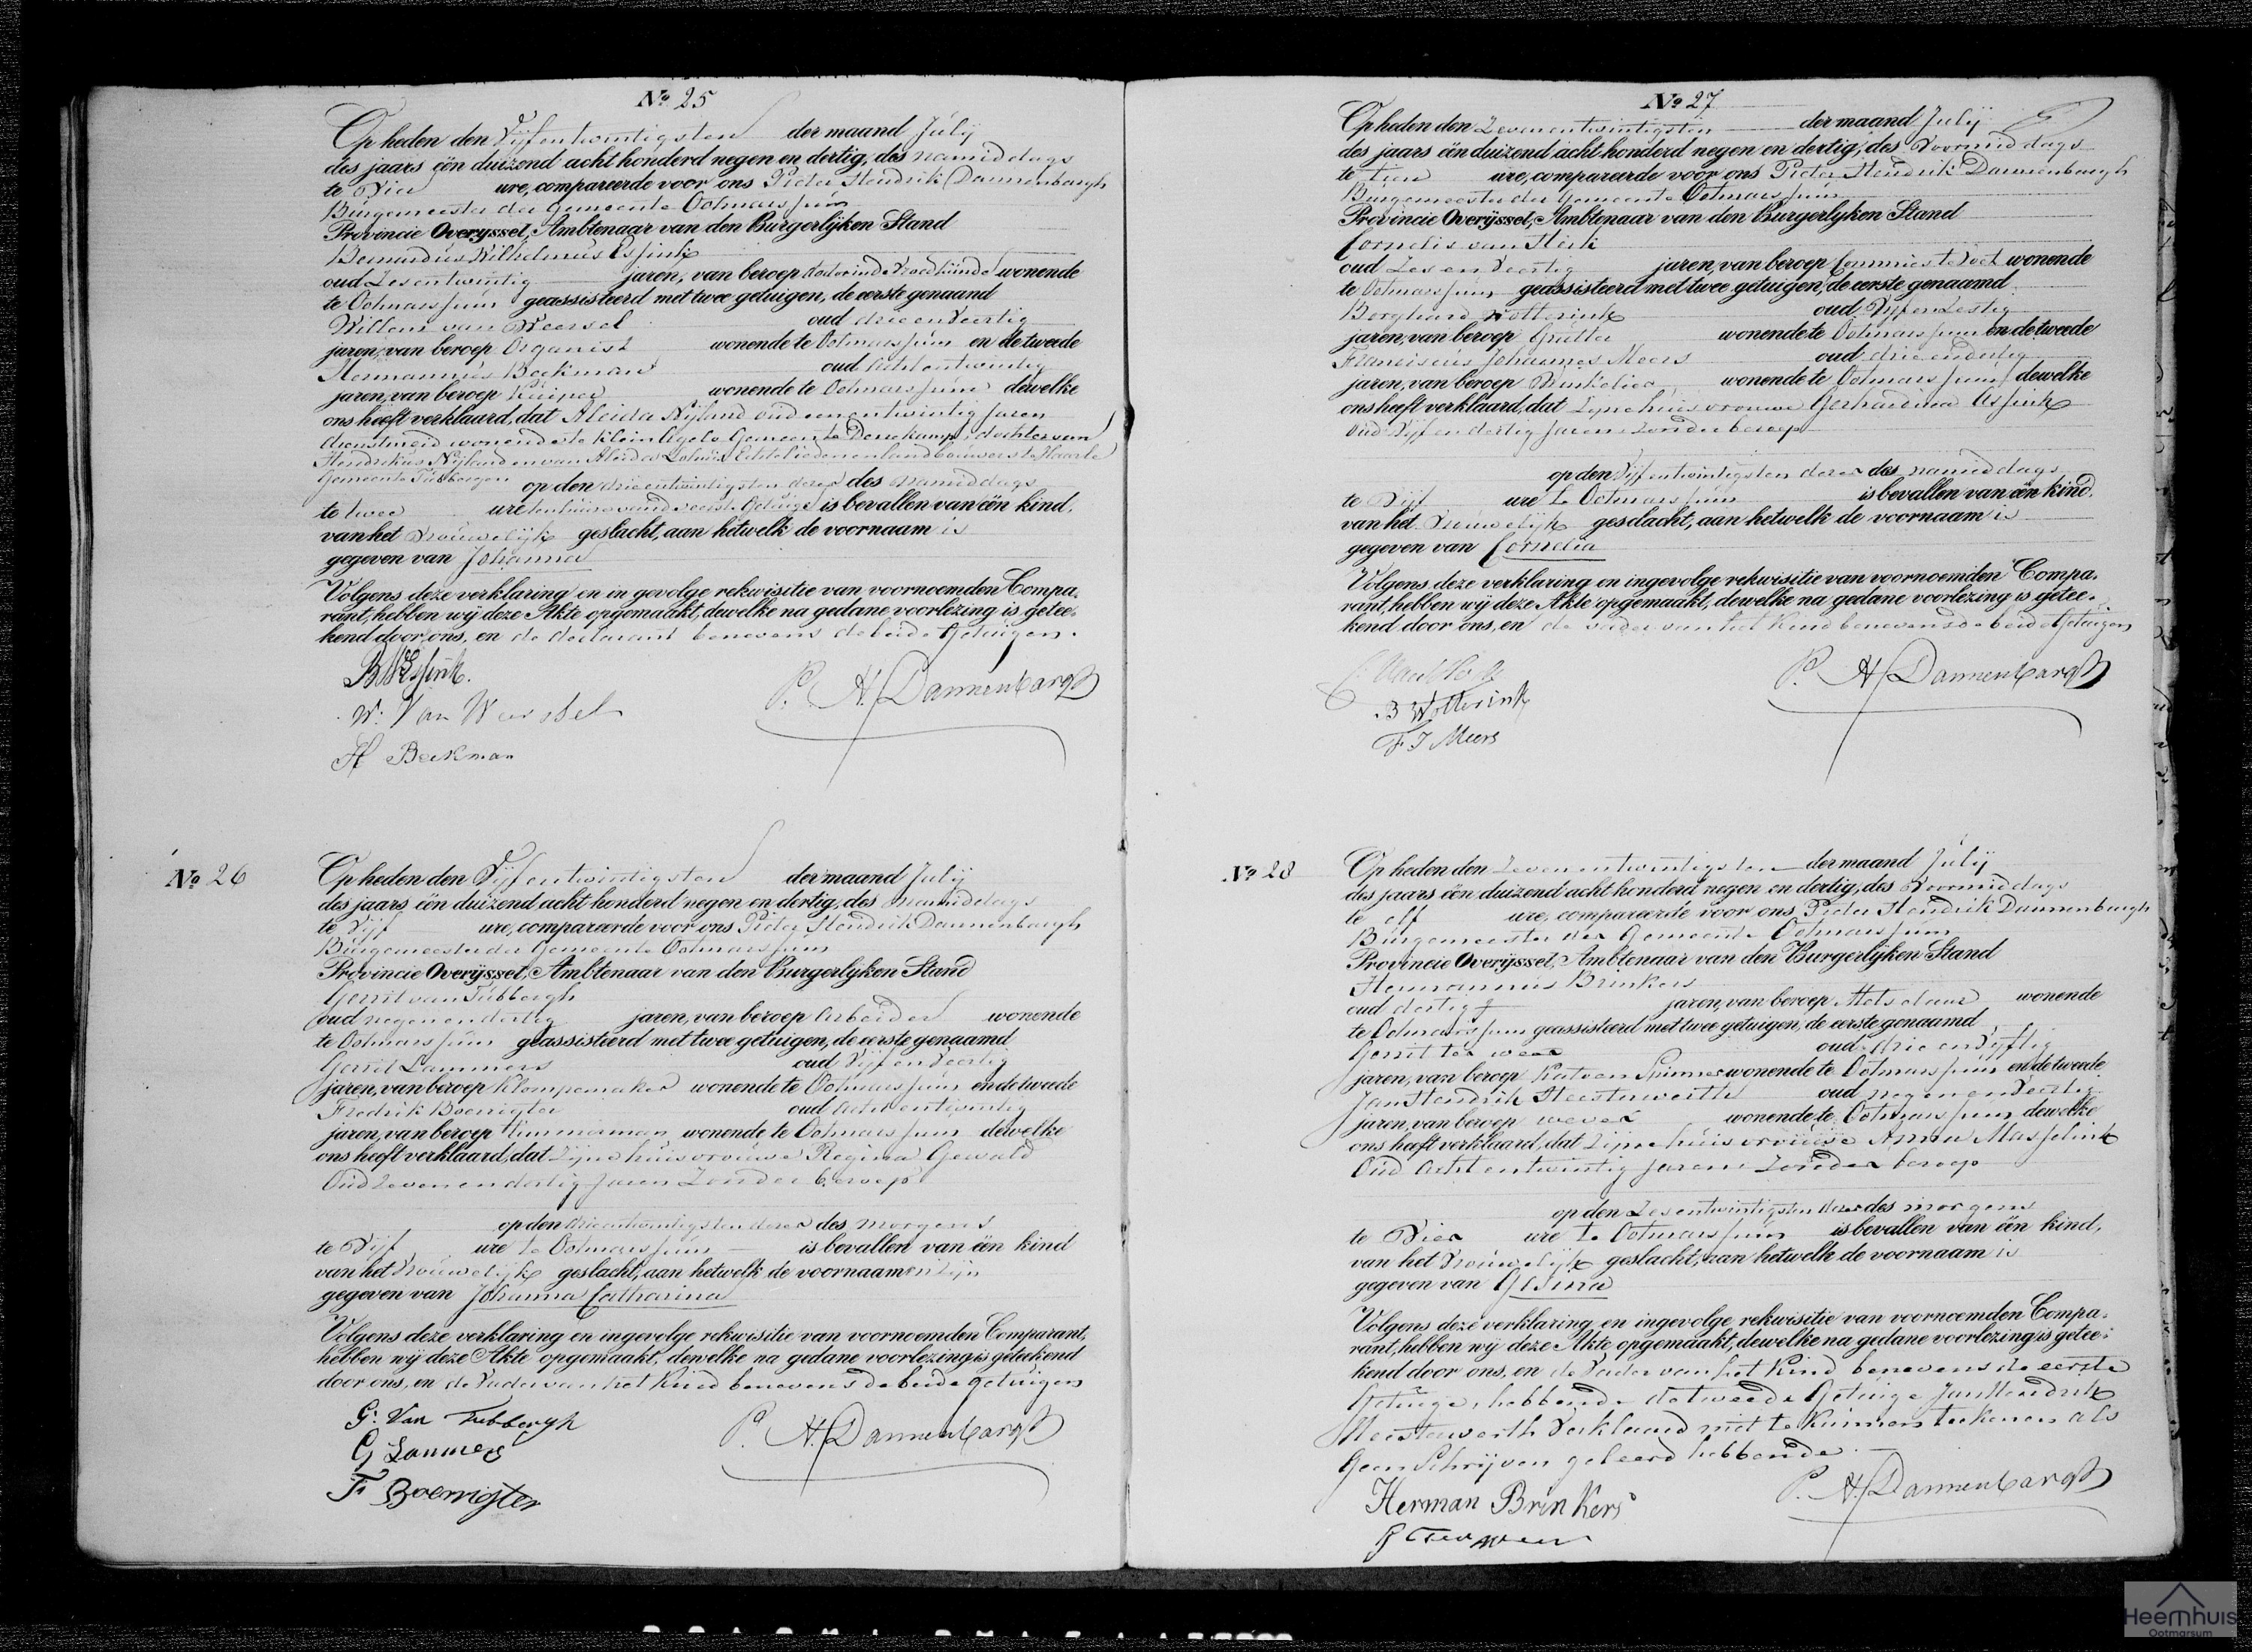 Nº 25
Op heden den Vijfentwintigsten der maand Julij
des jaars één duizend acht honderd negen en dertig, des namiddags
te Vier ure, compareerde voor ons Pieter Hendrik Dannenbargh
Burgemeester der Gemeente Ootmarssum
Provincie Overijssel, Ambtenaar van den Burgerlijken Stand
Bernardus Wilhelmus Essink
oud Zesentwintig jaren, van beroep Doctor in de Vroedkunde wonende
te Ootmarssum geassisteerd met twee getuigen, de eerste genaamd
Willem van Weersel oud drie en Veertig
jaren, van beroep Organist wonende te Ootmarssum en de tweede
Hermannus Beekman oud Acht entwintig
jaren, van beroep Kuiper wonende te Ootmarssum dewelke
ons heeft verklaard, dat Aleida Nijland oud eenentwintig Jaren
dienstmeid wonende te Klein Agele Gemeente Denekamp, dochter van
Hendrikus Nijland en van Aleida Echtelieden en landbouwers te Haarle
Gemeente Tubbergen op den drieentwintigsten dezer des namiddags
te twee ure ten huize van de eerste Getuige is bevallen van één kind,
van het Vrouwelijk geslacht, aan hetwelk de voornaam is
gegeven van Johanna
Volgens deze verklaring en in gevolge rekwisitie van voornoemden Compa-
rant, hebben wij deze Akte opgemaakt, dewelke na gedane voorlezing is getee-
kend door ons, en de declarant benevens de beide Getuigen.
BWEssink.
W: Van Weersel
P. H. Dannenbargh
H Beekman
Nº 26
Op heden den Vijfentwintigsten der maand Julij
des jaars één duizend acht honderd negen en dertig, des namiddags
te Vijf ure, compareerde voor ons Pieter Hendrik Dannenbargh
Burgemeester der Gemeente Ootmarssum
Provincie Overijssel, Ambtenaar van den Burgerlijken Stand
Gerrit van Tubbergh
oud negenendertig jaren, van beroep Arbeider wonende
te Ootmarssum geassisteerd met twee getuigen, de eerste genaamd
Gerrit Lammers oud Vijf en Veertig
jaren, van beroep Klompemaker wonende te Ootmarssum en de tweede
Fredrik Boerrigter oud Acht entwintig
jaren, van beroep Timmerman wonende te Ootmarssum dewelke
ons heeft verklaard, dat Zijne huisvrouwe Regina Gewald
Oud Zevenendertig Jaren Zonder beroep
op den drieentwintigsten dezer des morgens
te Vijf ure te Ootmarssum is bevallen van één kind
van het Vrouwelijk geslacht, aan hetwelk de voornaamen Zijn
gegeven van Johanna Catharina
Volgens deze verklaring en ingevolge rekwisitie van voornoemden Comparant,
hebben wij deze Akte opgemaakt, dewelke na gedane voorlezing is geteekend
door ons, en de Vader van het Kind benevens de beide getuigen
G: Van Tubbergh
G Lammers
P. H. Dannenbargh
F Boerrigter
Nº 27
Op heden den Zevenentwintigsten der maand Julij
des jaars één duizend acht honderd negen en dertig, des Voormiddags
te tien ure, compareerde voor ons Pieter Hendrik Dannenbargh
Burgemeester der Gemeente Ootmarssum
Provincie Overijssel, Ambtenaar van den Burgerlijken Stand
Cornelis van
oud Zes en Veertig jaren, van beroep Commies te Voet wonende
te Ootmarssum geassisteerd met twee getuigen, de eerste genaamd
Borghard Wolterink oud Vijfenzestig
jaren, van beroep wonende te Ootmarssum en de tweede
Franciscus Johannes Meers oud drie endertig
jaren, van beroep Winkelier wonende te Ootmarssum dewelke
ons heeft verklaard, dat Zyne huisvrouwe Gerhardina Assink
Oud Vijf en dertig Jaren zonder beroep
op den Vijfentwintigsten dezer des namiddags
te Vijf ure te Ootmarssum is bevallen van één kind,
van het Vrouwelijk geslacht, aan hetwelk de voornaam is
gegeven van Cornelia
Volgens deze verklaring en ingevolge rekwisitie van voornoemden Compa-
rant, hebben wij deze Akte opgemaakt, dewelke na gedane voorlezing is getee-
kend door ons, en de vader van het Kind benevens de beide Getuigen
P. H. Dannenbargh
B Wolterink
F J Meers
Nº 28
Op heden den Zevenentwintigsten der maand Julij
des jaars één duizend acht honderd negen en dertig, des Voormiddags
te elf ure, compareerde voor ons Pieter Hendrik Dannenbargh
Burgemeester der Gemeente Ootmarssum
Provincie Overijssel, Ambtenaar van den Burgerlijken Stand
Hermannus Brinkers
oud dertig jaren, van beroep Metselaar wonende
te Ootmarssum geassisteerd met twee getuigen, de eerste genaamd
Gerrit ter weer oud drie en Vijftig
jaren, van beroep Katoen Spinner wonende te Ootmarssum en de tweede
Jan Hendrik Heesterwerth oud negen en Veertig
jaren, van beroep wever wonende te Ootmarssum dewelke
ons heeft verklaard, dat Zijne huisvrouwe Anna Masselink
Oud Acht entwintig Jaren Zonder beroep
op den Zesentwintigsten dezer des morgens
te Vier ure te Ootmarssum is bevallen van één kind,
van het Vrouwelijk geslacht, aan hetwelk de voornaam is
gegeven van Gesina
Volgens deze verklaring en ingevolge rekwisitie van voornoemden Compa-
rant, hebben wij deze Akte opgemaakt, dewelke na gedane voorlezing is getee-
kend door ons, en de Vader van het Kind benevens de eerste
Getuige, hebbende de tweede Getuige Jan Hendrik
Heesterwerth Verklaard niet te Kunnen teekenen als
Geen Schrijven geleerd hebbende
P. H. Dannenbargh
Herman Brinkers
Heemhuis
Ootmarsum